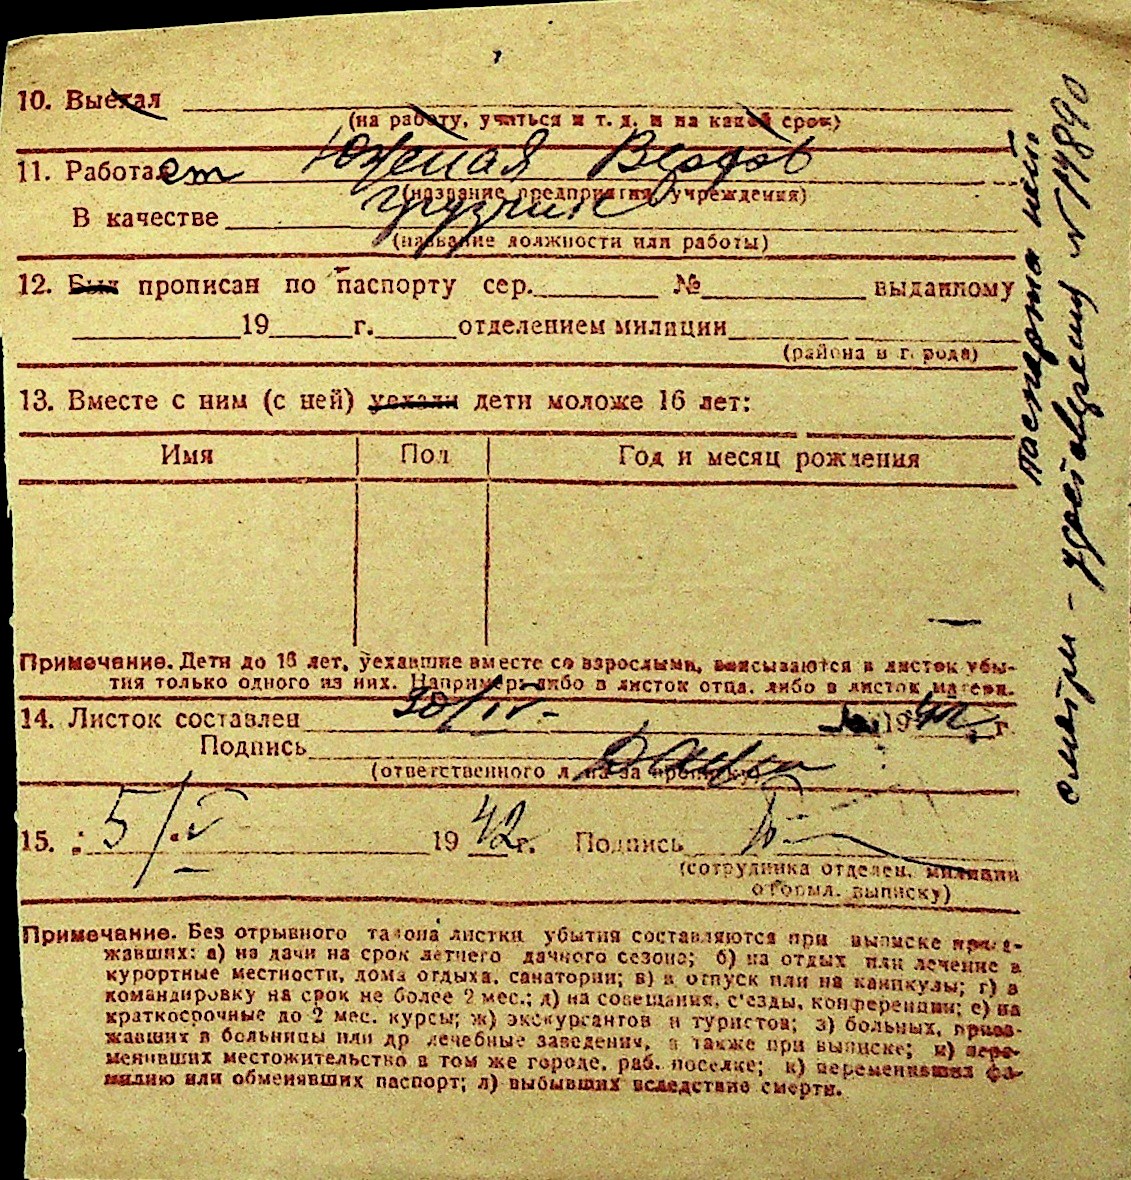 10. Выехал
(на работу, учиться и т. д. и на какой срок)
11. Работает Южная
(название предприятия, учреждения)
В качестве грузчик
(название должности или работы)
12. Был прописан по паспорту сер. № выданному
19 г. отделением милиции
(района в города)
13. Вместе с ним (с ней) уехали дети моложе 16 лет:
Имя Пол Год и месяц рождения
Примечание. Дети до 16 лет, уехавшие вместе со взрослыми, вписываются в листок убы-
тия только одного из них. Например: либо в листок отца, либо в листок матери.
14. Листок составлен 30/IV- 1942 г.
Подпись
(ответственного лица за прописку)
15. „5/V“ 1942 г. Подпись
(сотрудника отделен. милиции
оформл. выписку)
Примечание. Без отрывного талона листки убытия составляются при выписке приез-
жавших: а) на дачи на срок летнего дачного сезона; б) на отдых или лечение в
курортные местности, дома отдыха, санатории; в) в отпуск или на каникулы; г) в
командировку на срок не более 2 мес.; д) на совещания, с'езды, конференции; е) на
краткосрочные до 2 мес. курсы; ж) экскурсантов и туристов; з) больных, приез-
жавших в больницы или др лечебные заведения, а также при выписке; и) пере-
менивших местожительство в том же городе, раб. поселке; к) переменивших фа-
милию или обменявших паспорт; л) выбывших вследствие смерти.
паспорта нет
смотри - удостоверению № 14890